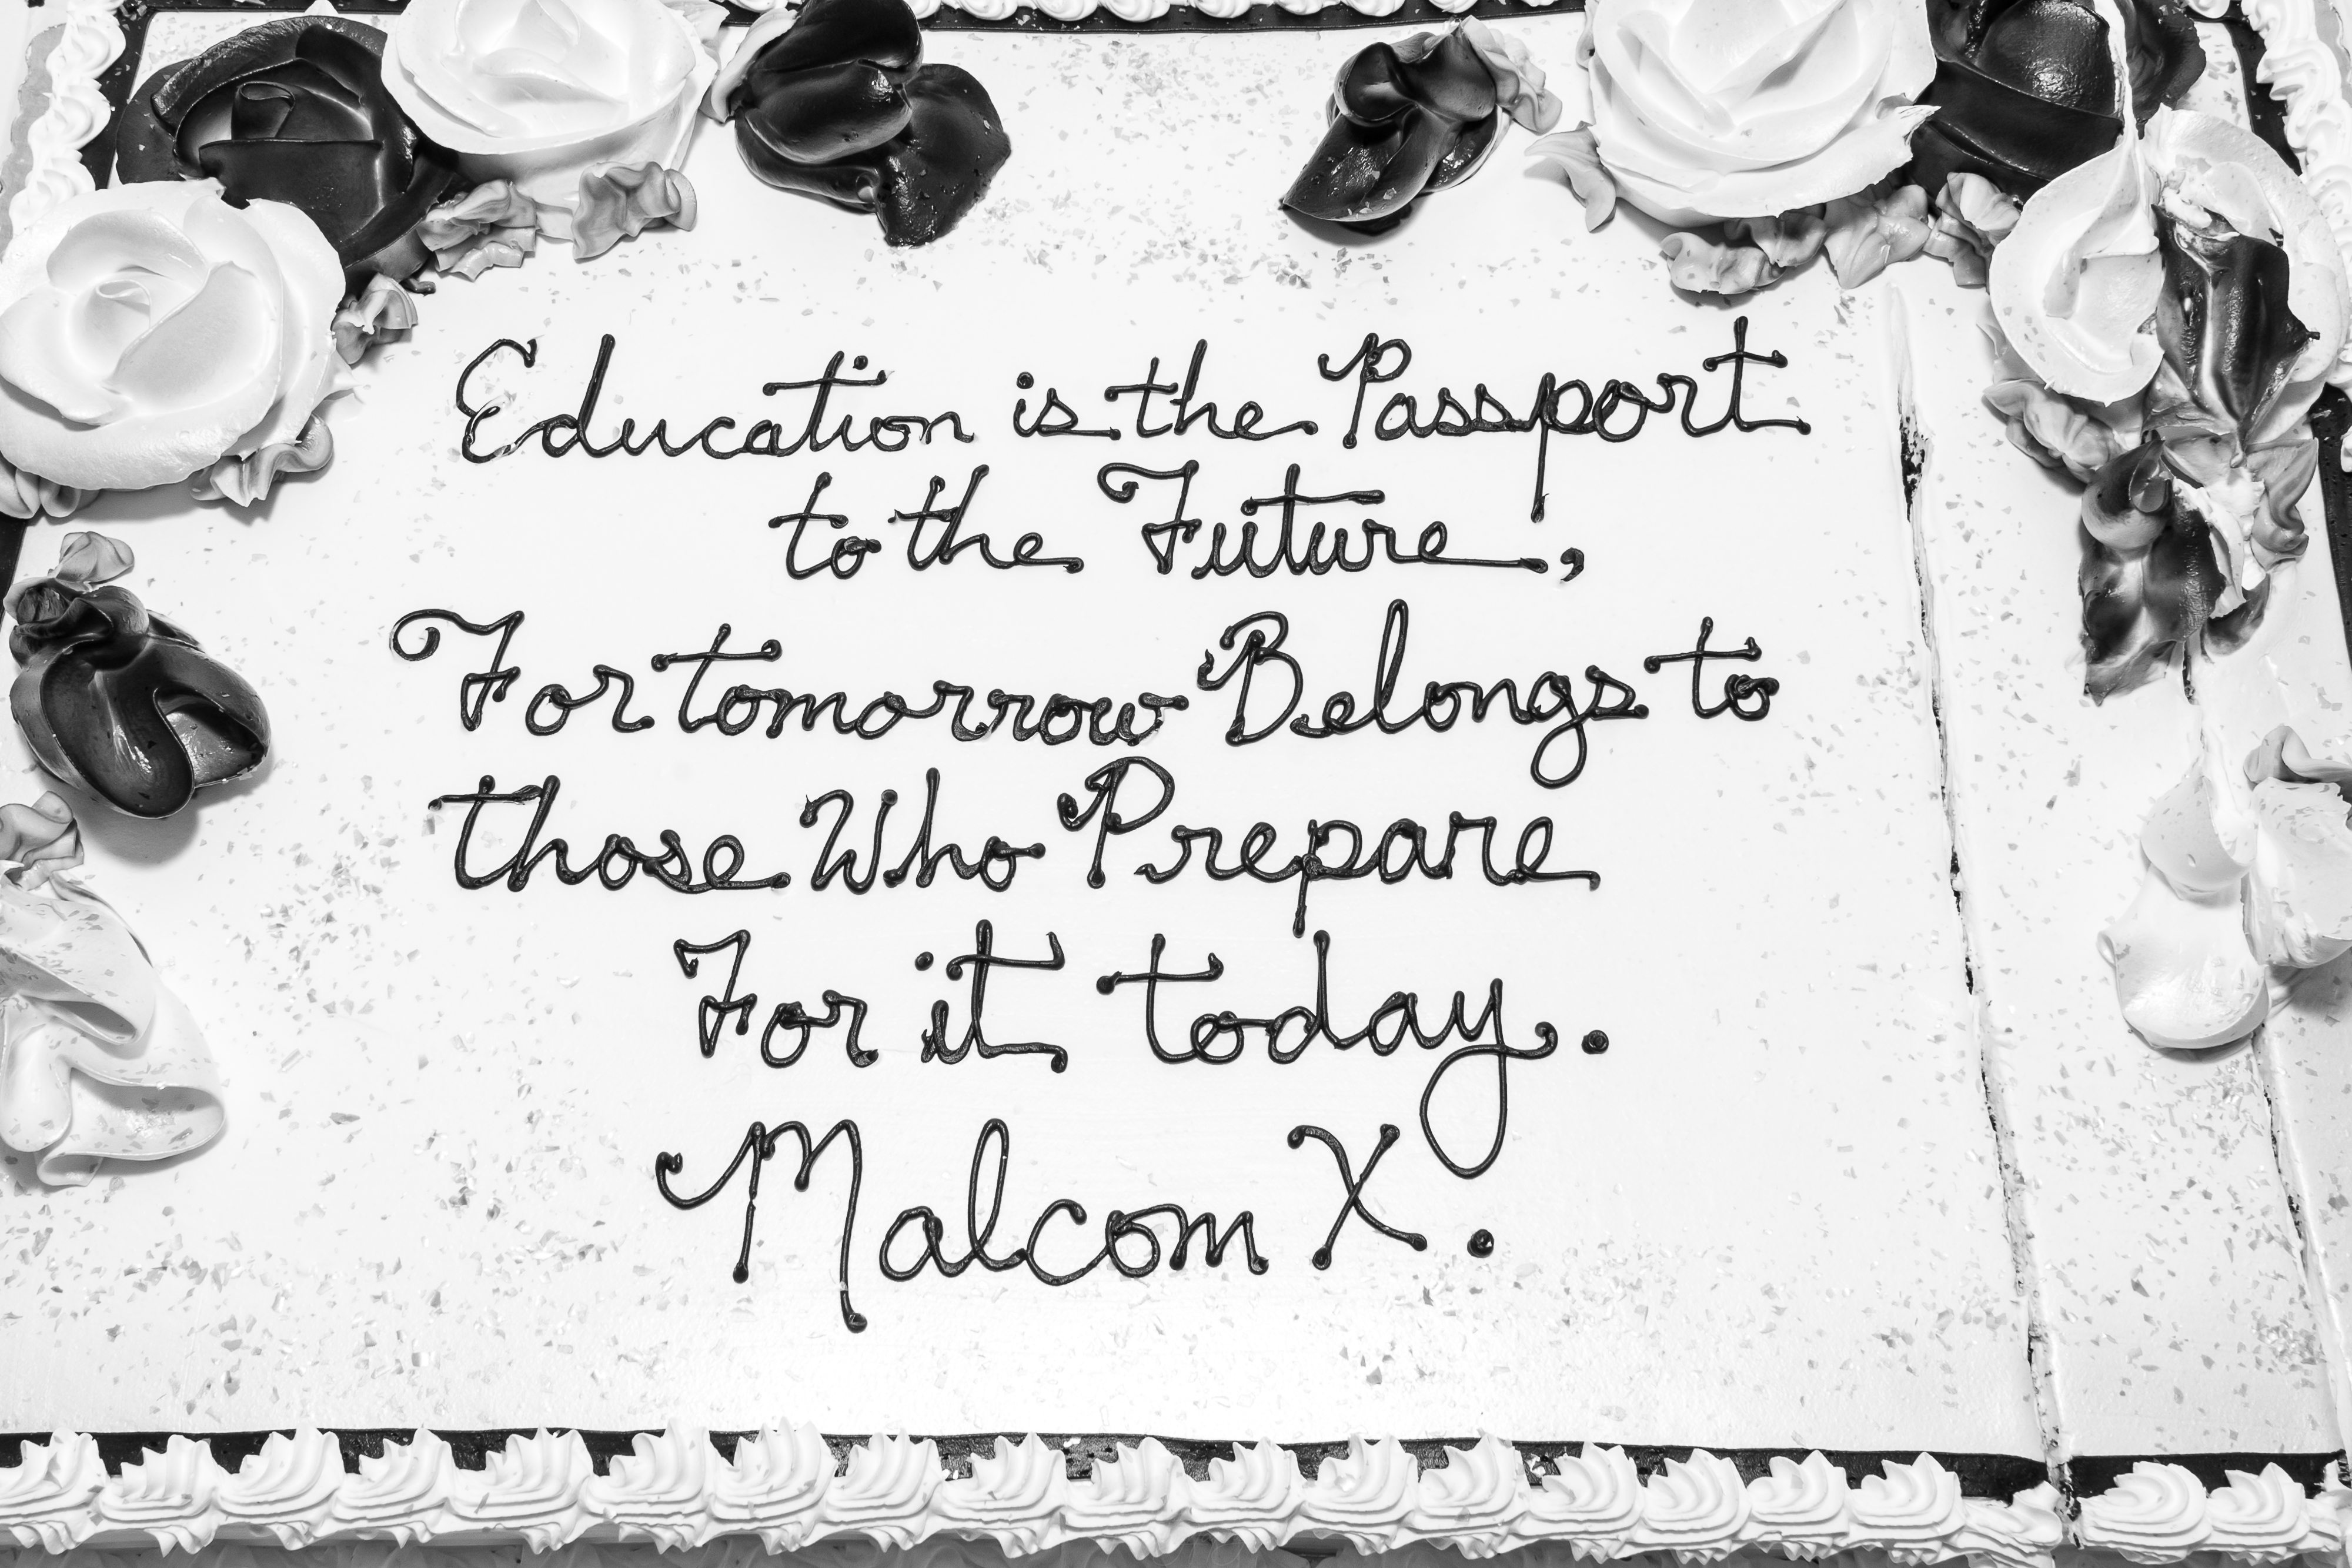 Education is the Passport
to the Future,
For tomorrow Belongs to
those Who Prepare
For it today.
Malcom X.